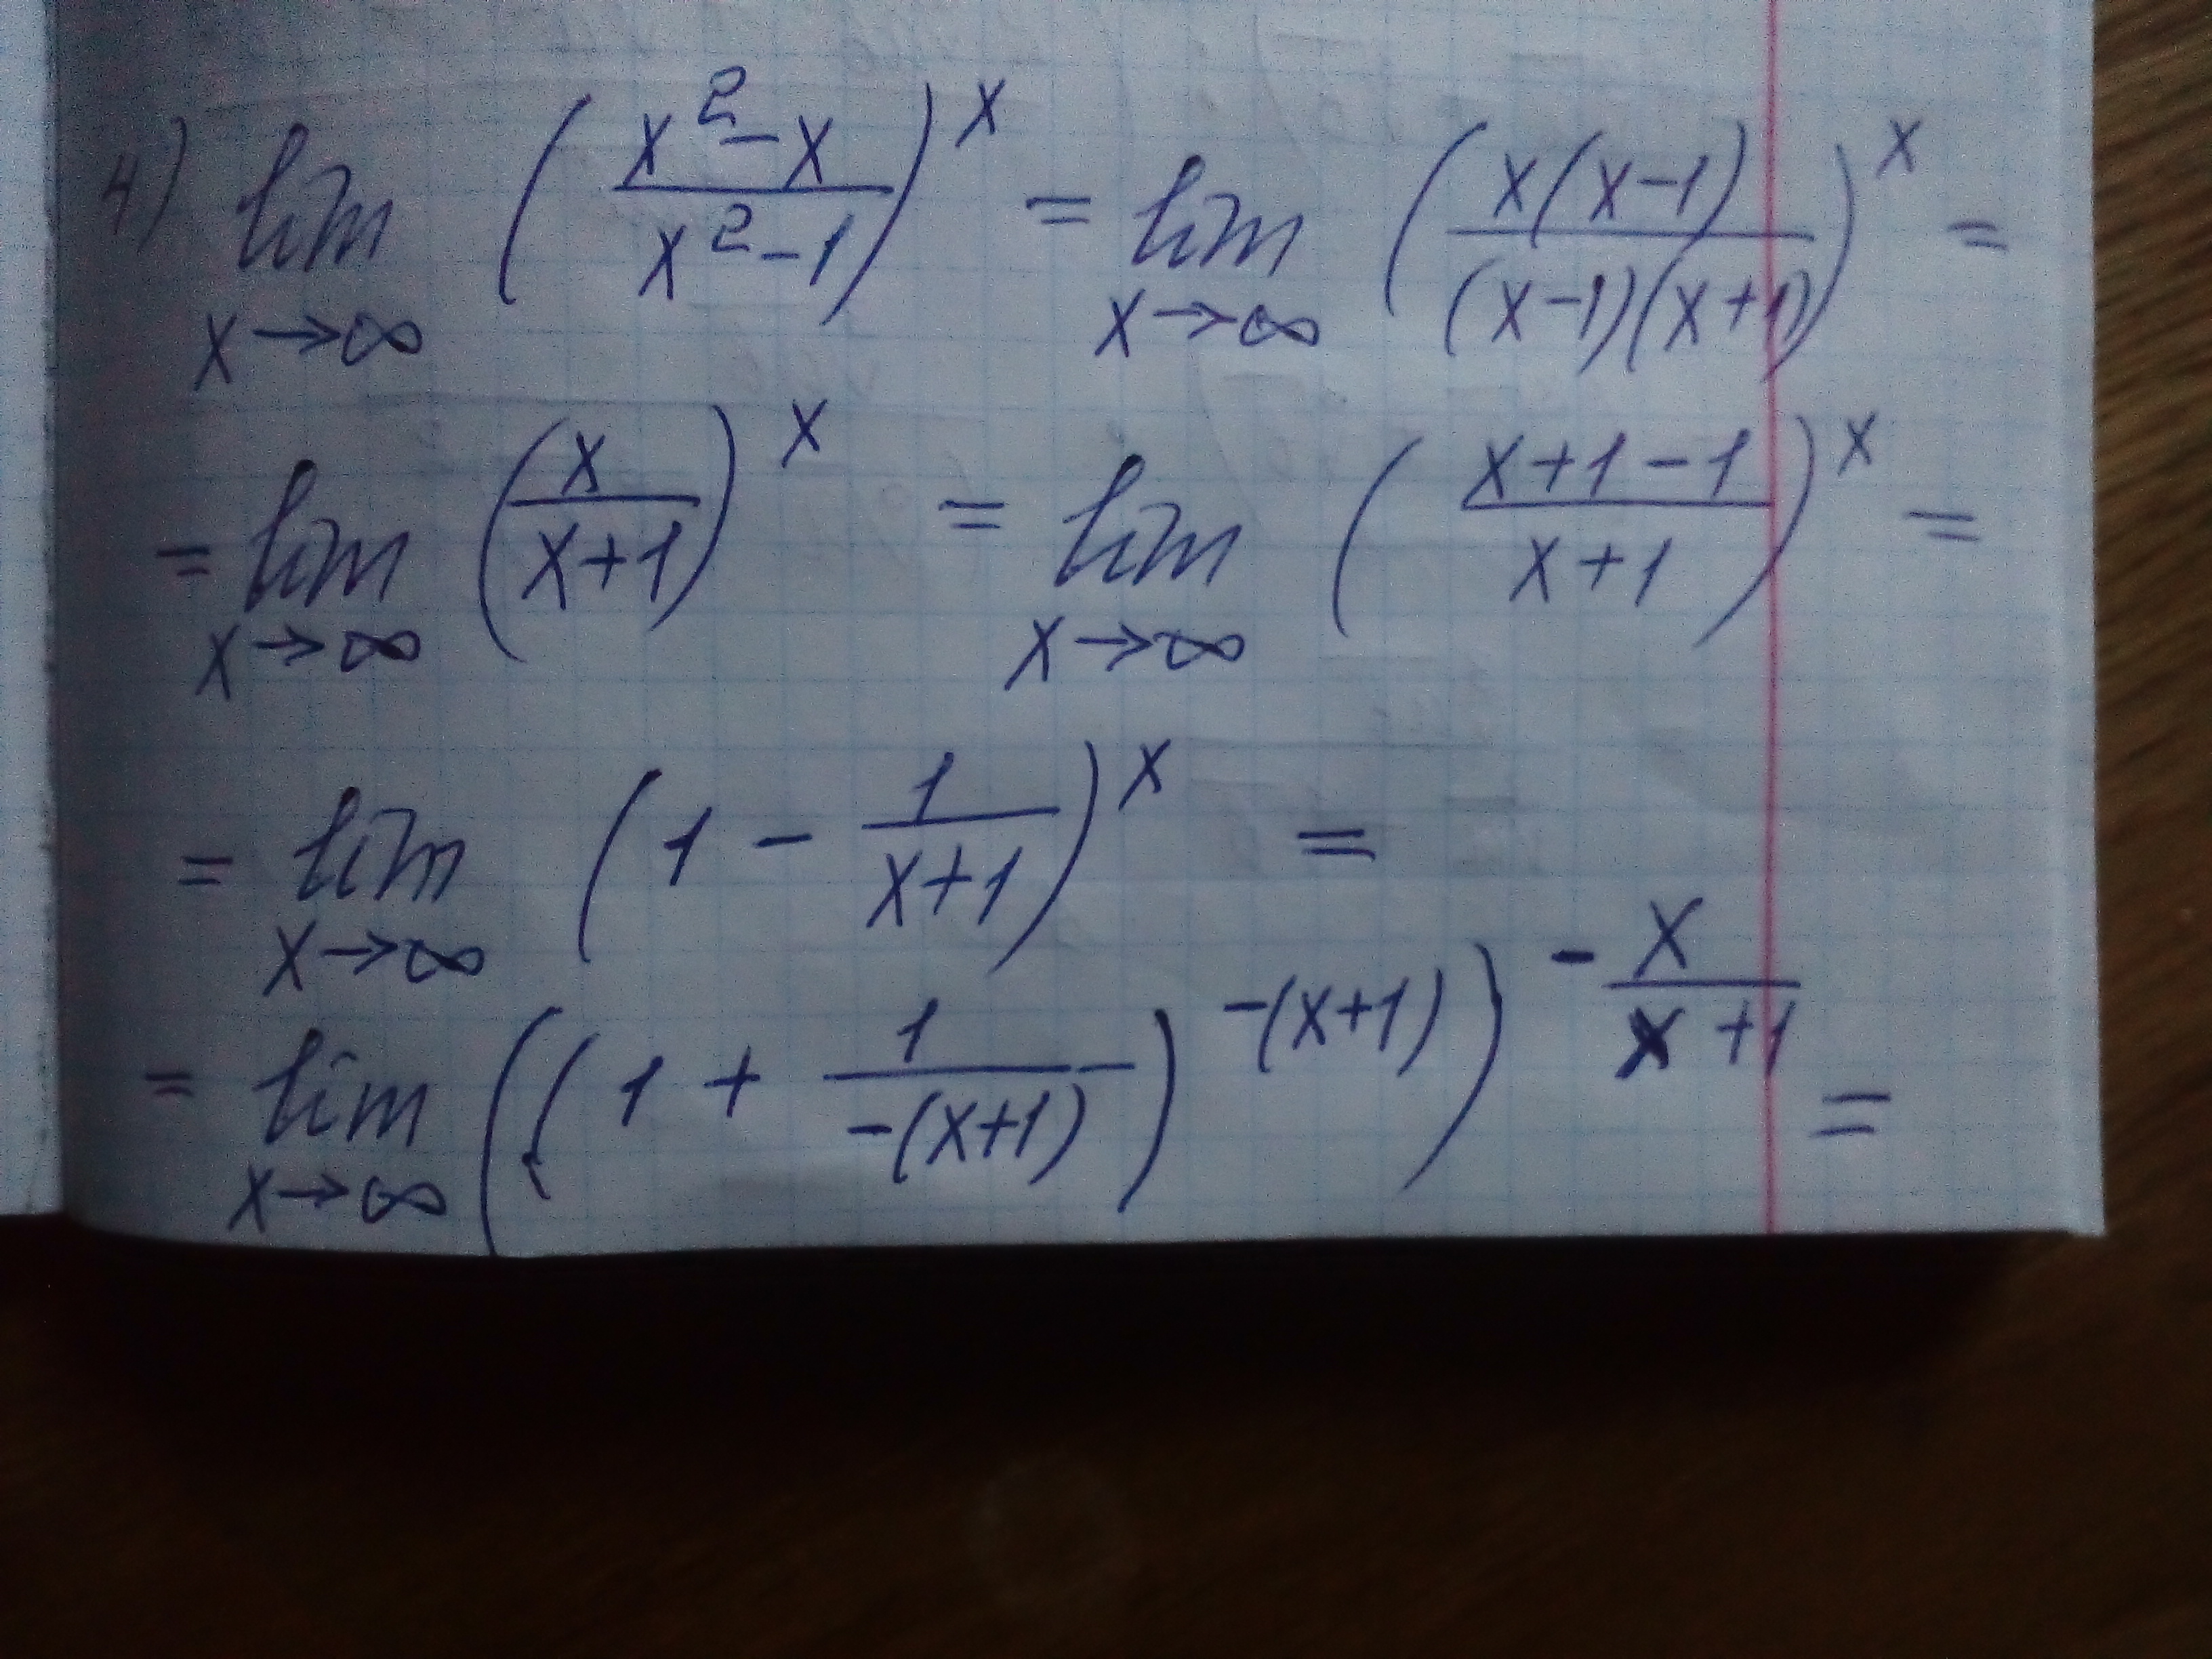 4) lim x→∞ ((x²-x)/(x²-1))^x = lim x→∞ ((x(x-1))/((x-1)(x+1)))^x =
= lim x→∞ (x/(x+1))^x = lim x→∞ ((x+1-1)/(x+1))^x =
= lim x→∞ (1 - 1/(x+1))^x =
= lim x→∞ ((1 + 1/(-(x+1)))^(-(x+1)))^(-x/(x+1)) =